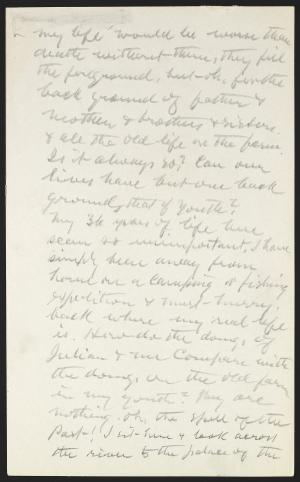 my life would be worse than
death without them, they fill
the foreground, but oh, for the
back ground of father &
mother & brothers & sisters,
& all the old life on the farm.
Is it always so? Can our
lives have but one back
ground, that of youth?
My 36 years of life here
seem so unimportant, I have
simply been away from
home on a camping & fishing
expedition & must hurry
back where my real life
is. How do the doings of
Julian & me compare with
the doings on the old farm
in my youth? They are
nothing. Oh, the spell of the
Past! I sit here & look across
the river to the palace of the